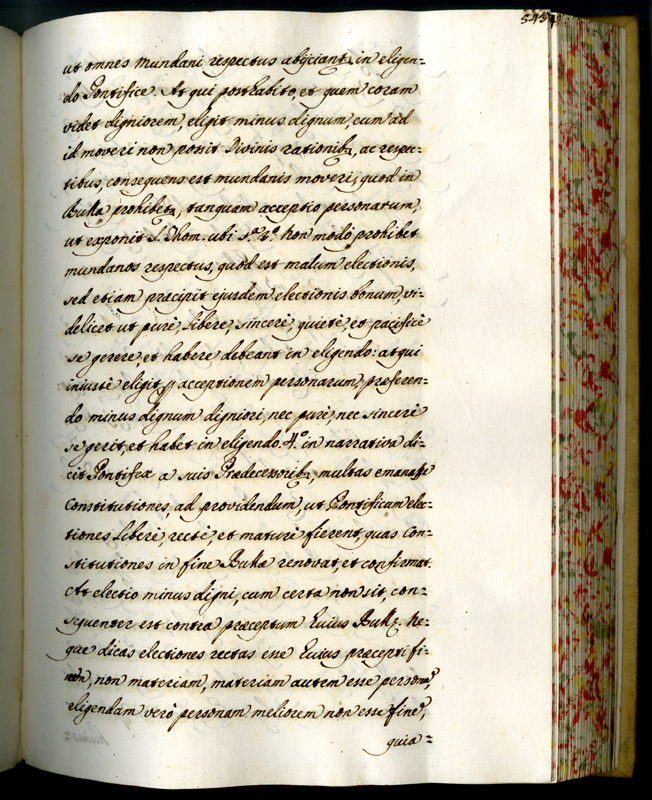 ut omnes mundani respectus abijciantꝫ in eligen=
do Pontifice. At qui posthabito, et quem coram
videt digniorem, eligit minus dignum, cum ad
id moveri non possit Divinis rationibꝫ, ac respec=
tibus, consequens est mundanis moveri, quod in
Bulla prohibetꝫ, tanquam acceptio personarum,
ut exponit S. Thom. ubi sᵃ. 4.º non modo prohibet
mundanos respectus, quod est malum electionis,
sed etiam præcipit ejusdem electionis bonum, vi=
delicet ut purè, liberè, sincerè, quietè, et pacificè
se gerere, et habere debeant in eligendo: at qui
iniustè eligit ꝑ acceptionem personarum, preferen=
do minus dignum digniori, nec purè, nec sincerè
se gerit, et habet in eligendo. 4.º in narrativa di=
cit Pontifex a suis Predecessoribꝫ, multas emanasse
Constitutiones, ad providendum, ut Pontificum elec=
tiones liberè, rectè, et maturè fierent, quas Con=
stitutiones in fine Bullæ renovat, et confirmat.
At electio minus digni, cum certa non sit, con=
sequenter est contra præceptum huius Bullę. Ne=
que dicas electiones rectas esse huius præcepti fi=
nem, non materiam, materiam autem esse personaˢ,
eligendam verò personam meliorem non esse fineˢ,
quia=